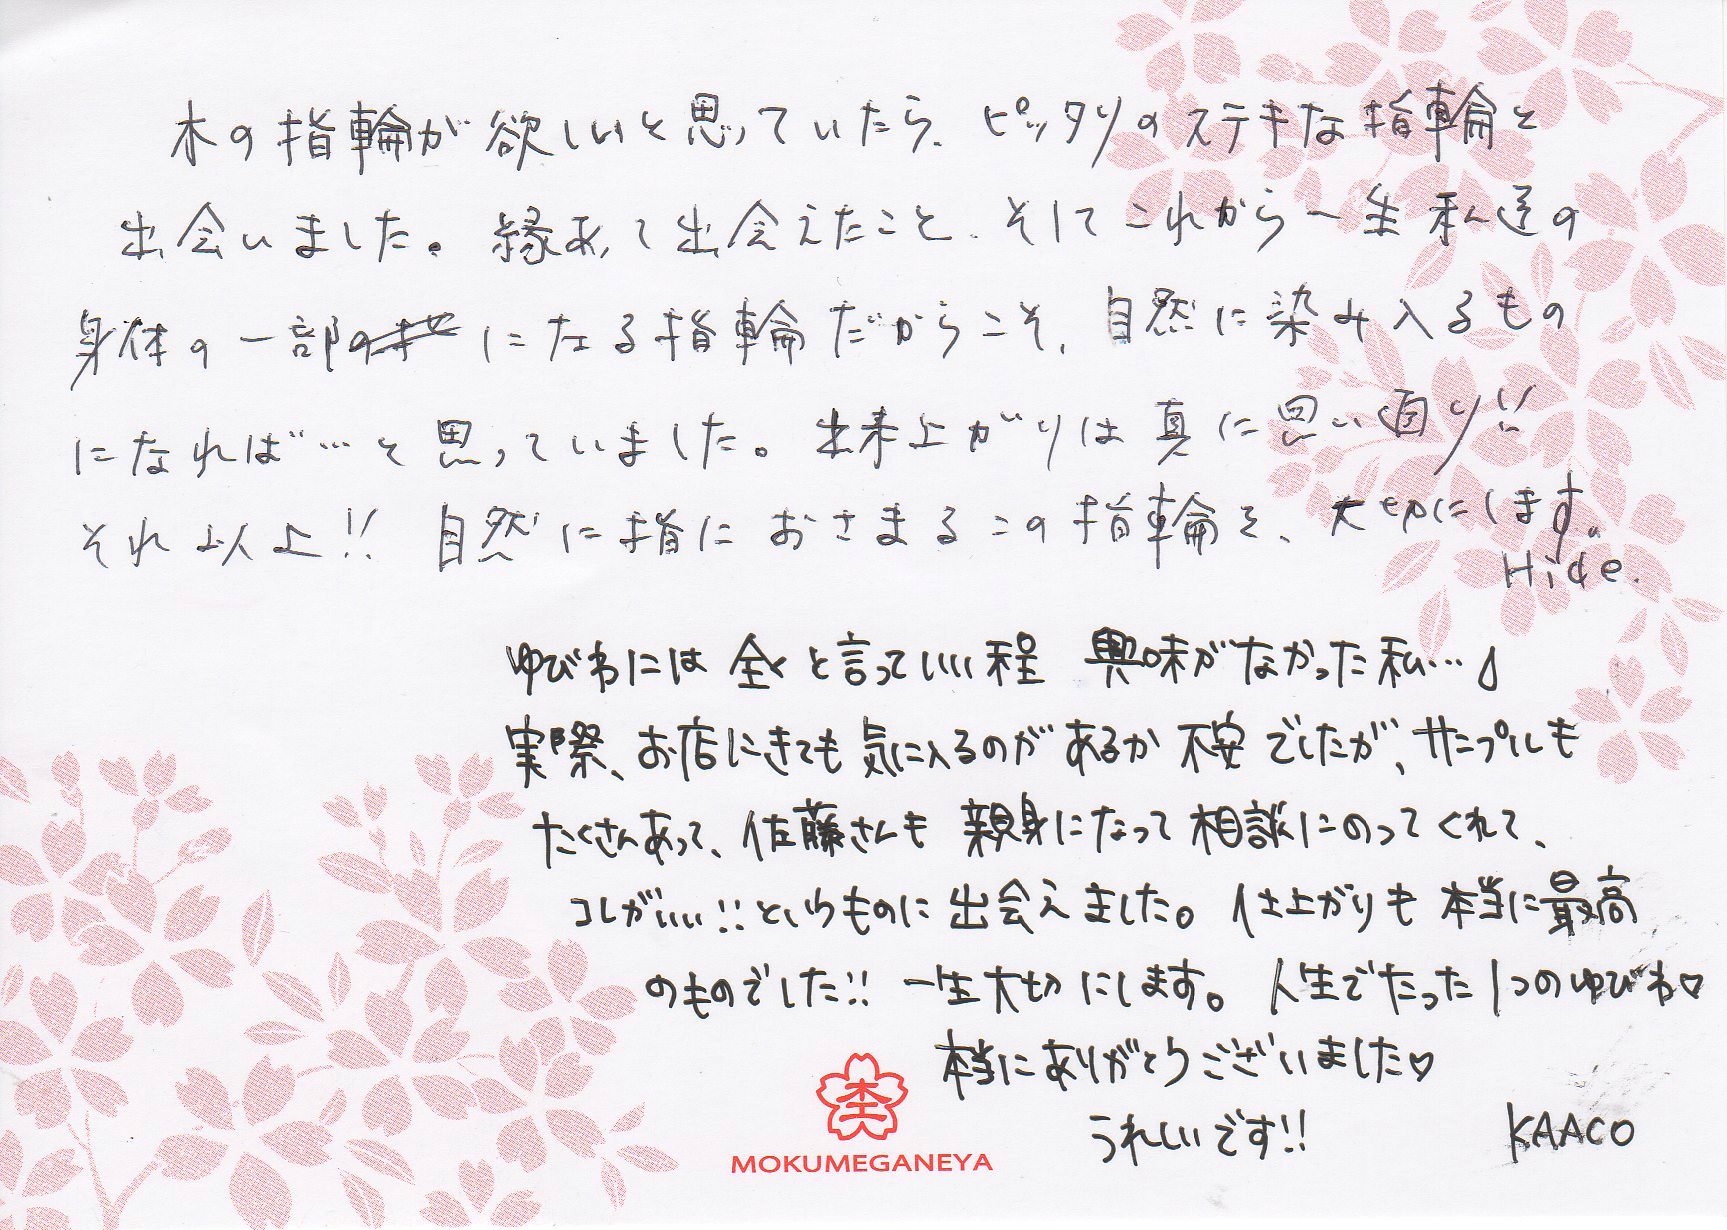 木の指輪が欲しいと思っていたら、ピッタリのステキな指輪と
出会いました。縁あって出会えたこと、そしてこれから一生私達の
身体の一部になる指輪だからこそ、自然に染み入るもの
になれば…と思っていました。出来上がりは真に思い通り!!
それ以上!! 自然に指におさまるこの指輪を、大切にします。
Hide.
ゆびわには全くと言っていい程 興味がなかった私…
実際、お店にきても気に入るのがあるか不安でしたが、サンプルも
たくさんあって、佐藤さんも親身になって相談にのってくれて、
コレがいい!!というものに出会えました。仕上がりも本当に最高
のものでした!! 一生大切にします。人生でたった1つのゆびわ♡
本当にありがとうございました♡
うれしいです!! KAACO
MOKUMEGANEYA